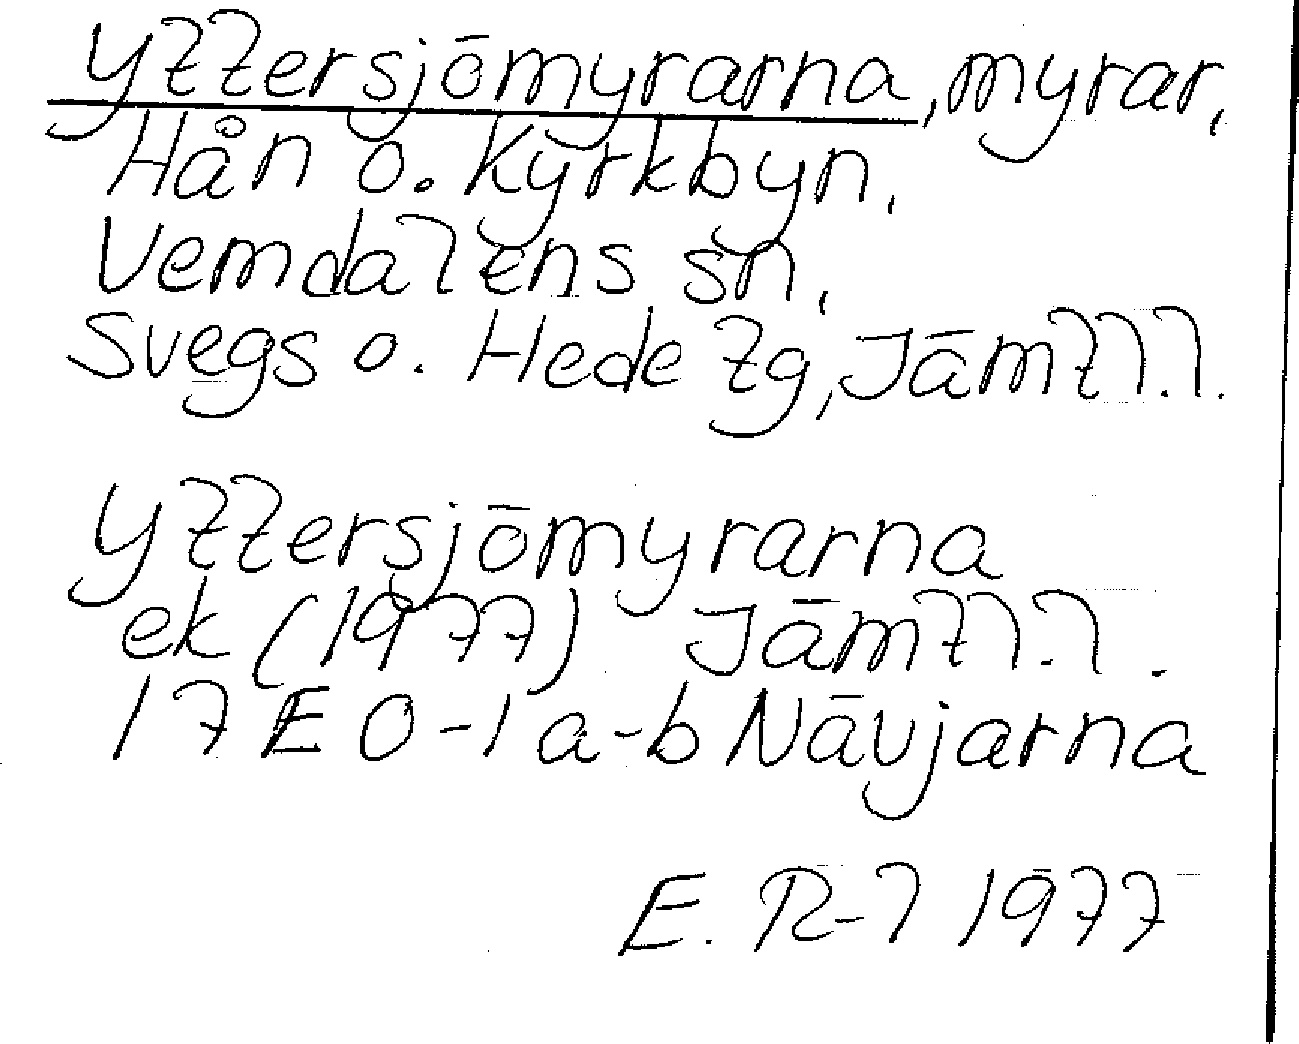 Yttersjömyrarna, myrar,
Hån o. Kyrkbyn,
Vemdalens sn,
Svegs o. Hede tg, Jämtl.l.
Yttersjömyrarna
ek (1977) Jämtl.l.
17E 0-1 a-b Nävjarna
E. R-l 1977